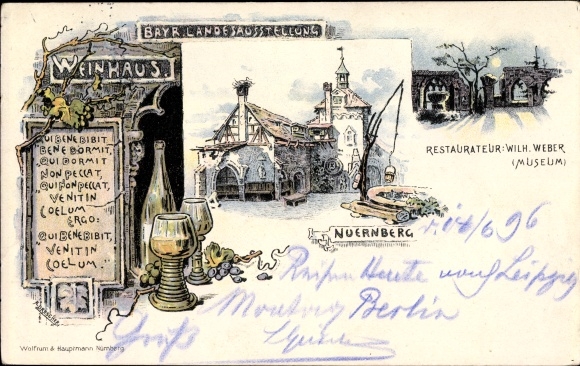 BAYR. LANDESAUSSTELLUNG
WEINHAUS.
QUI BENE BIBIT
BENE DORMIT,
QUI DORMIT
NON PECCAT,
QUI NON PECCAT,
VENIT IN
COELUM
ERGO:
QUI BENE BIBIT,
VENIT IN
COELUM
RESTAURATEUR: WILH. WEBER
(MUSEUM)
NUERNBERG
14/6 96
Reisen heute nach Leipzig
Montag Berlin
Gruß
Wolfrum & Hauptmann Nürnberg.